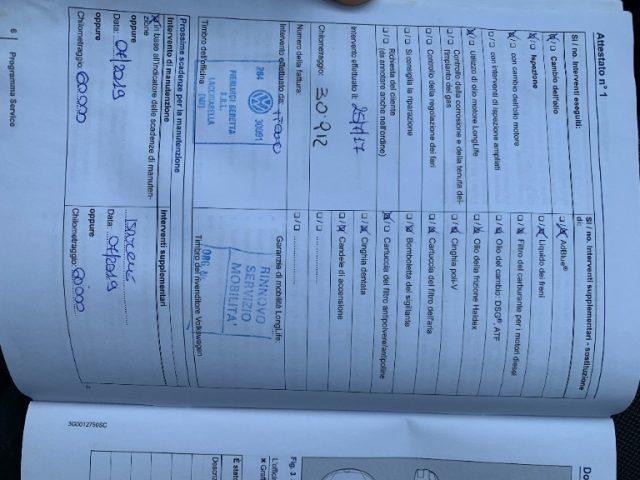 Attestato n° 1
Sì / no. Interventi eseguiti:
Cambio dell'olio
Ispezione
con cambio dell'olio motore
con interventi di ispezione ampliati
Utilizzo di olio motore LongLife
Controllo della corrosione e della tenuta dell'impianto del gas
Controllo della regolazione dei fari
Si consiglia la riparazione
Richiesta del cliente
(da annotare anche nell'ordine)
Intervento effettuato il: 25/7/17
Chilometraggio: 30.912
Numero della fattura:
Intervento effettuato da:
264 30091
PIERLUIGI BENETTA
S.R.L.
Timbro dell'officina
Prossima scadenza per la manutenzione
Intervento di manutenzione
in base all'indicatore delle scadenze di manutenzione
oppure
Data: 07/2019
oppure
Chilometraggio: 60.000
6 Programma Service
Sì / no. Interventi supplementari - sostituzione di:
AdBlue®
Liquido dei freni
Filtro del carburante per i motori diesel
Olio del cambio: DSG®, ATF
Olio della frizione Haldex
Cinghia poli-V
Cartuccia del filtro dell'aria
Bomboletta del sigillante
Cartuccia del filtro antipolvere/antipolline
Cinghia dentata
Candele di accensione
Garanzie di mobilità LongLife:
RINNOVO
SERVIZIO
MOBILITA'
Timbro del rivenditore Volkswagen
Interventi supplementari
Data: 07/2019
oppure
Chilometraggio: 60.000
3G0012750SC
Fig. 3